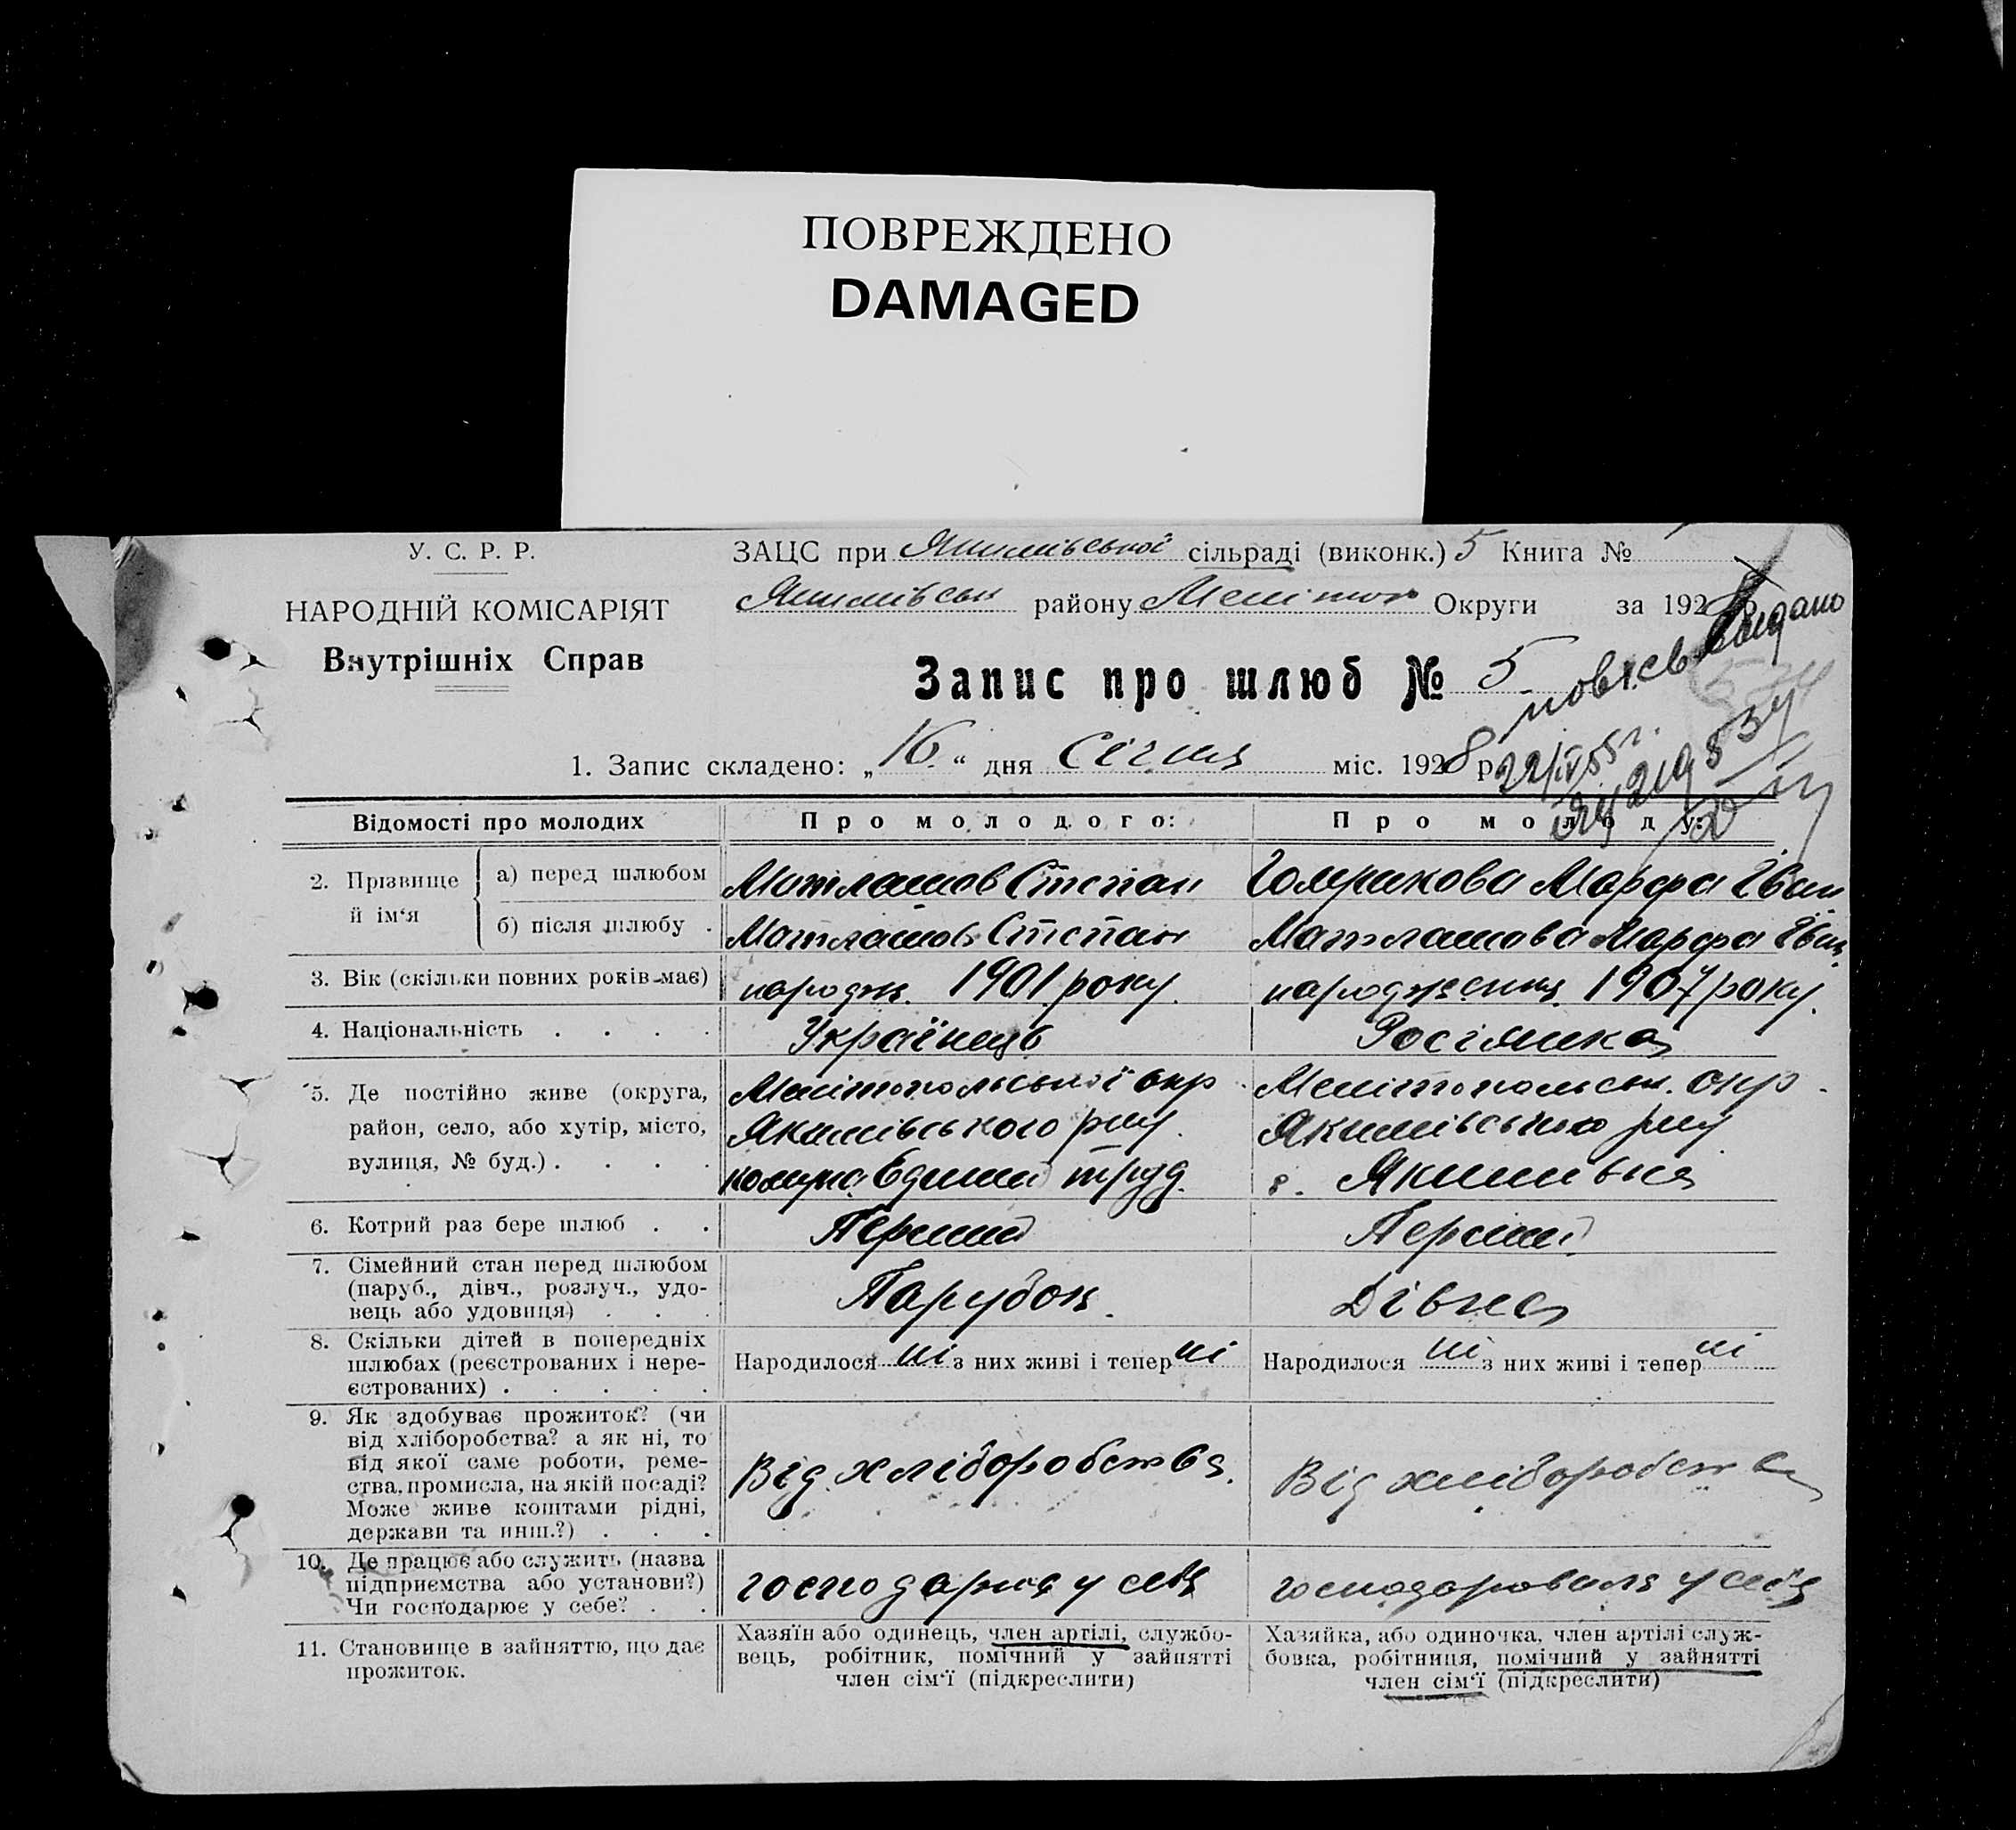 ПОВРЕЖДЕНО
DAMAGED
У. С. Р. Р.
НАРОДНІЙ КОМІСАРІЯТ
Внутрішніх Справ
ЗАЦС при Якимівської сільраді (виконк.) 5 Книга №
Якимівськ району Мелітоп Округи за 192
Запис про шлюб № 5
повт. св. видано
22/IV 55 г.
1. Запис складено: „16“ дня Січня міс. 1928 р
Відомості про молодих
Про молодого:
Про молоду:
2. Прізвище й ім‘я
а) перед шлюбом Матлашов Степан Марфа Іван
б) після шлюбу . Матлашов Степан Матлашова Марфа Іван.
3. Вік (скільки повних років має) народж. 1901 року. народження 1907 року.
4. Національність . . . . Українець Росіянка
5. Де постійно живе (округа,
район, село, або хутір, місто,
вулиця, № буд.) . . . .
Мелітопольської окр
Якимівського р-ну
комуна Єдиний труд.
Мелітопольськ. окр.
Якимівського р-ну
с. Якимівка
6. Котрий раз бере шлюб . . Перший Перший
7. Сімейний стан перед шлюбом
(паруб., дівч., розлуч., удо-
вець або удовиця) . . .
Парубок
Дівка
8. Скільки дітей в попередніх
шлюбах (реєстрованих і нере-
єстрованих) . . . . .
Народилося ні з них живі і тепер ні
Народилося ні з них живі і тепер ні
9. Як здобуває прожиток? (чи
від хліборобства? а як ні, то
від якої саме роботи, реме-
ства, промисла, на якій посаді?
Може живе коштами рідні,
держави та инш.?) . . .
Від хліборобства.
Від хліборобства
10. Де працює або служить (назва
підприємства або установи?)
Чи господарює у себе? . .
господарює у себе
господарювала у себе
11. Становище в зайняттю, що дає
прожиток.
Хазяїн або одинець, член артілі, службо-
вець, робітник, помічний у зайнятті
член сім‘ї (підкреслити)
Хазяйка, або одиночка, член артілі служ-
бовка, робітниця, помічний у зайнятті
член сім‘ї (підкреслити)